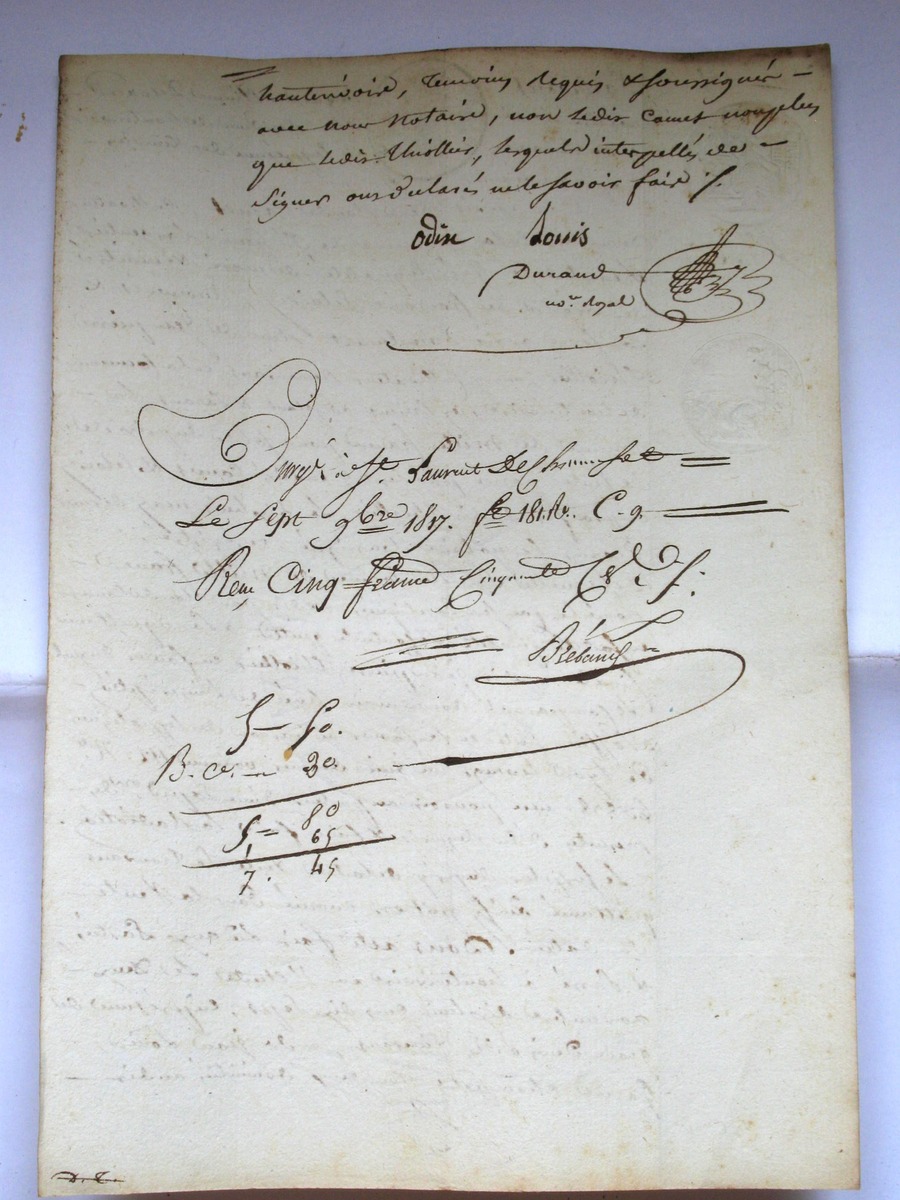 hauterivoire, temoins requis & soussignés —
avec nous Notaire, non ledit Camet non plus
que ledit Thiollier, lesquels interpellés de —
signer ont déclaré ne le savoir faire ./.
odin Louis
Durand
no.re Royal
à St. Laurent De Chamousset =
Le sept 9bre 1817. fo 181. C. 9.
Reçu Cinq francs Cinquante
5 — 50.
B. ce. — 30.
80
5 = 65
7. 45
D. T.